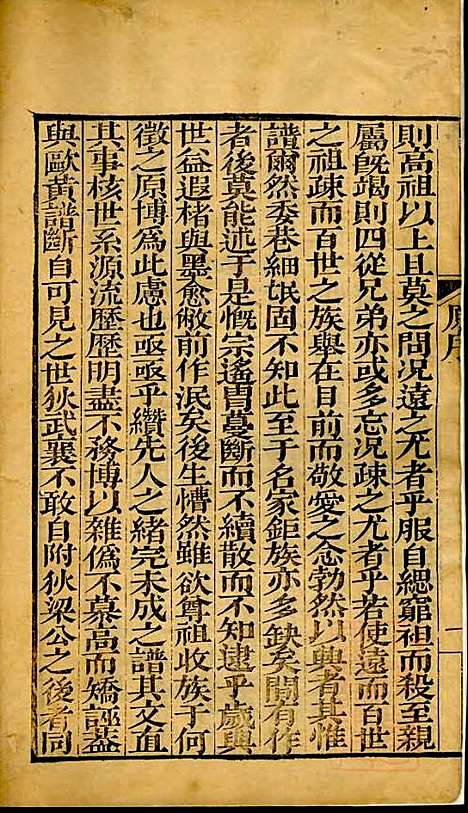 則高祖以上且莫之問况遠之尤者乎服自緦窮袒而殺至親
屬旣竭則四從兄弟亦或多忘况疎之尤者乎若使遠而百世
之祖疎而百世之族舉在目前而敬愛之念勃然以興者其惟
譜爾然委巷細氓固不知此至于名家鉅族亦多缺矣間有作
者後莫能述于是慨宗遙胄蔓斷而不續散而不知逮乎歲與
世益遐楮與墨愈敝前作泯矣後生懵然雖欲尊祖收族于何
徵之原博爲此慮也亟亟乎纘先人之緒完未成之譜其文直
其事核世系源流歷歷明盡不務博以雜僞不慕高而矯誣蓋
與歐黃譜斷自可見之世狄武襄不敢自附狄梁公之後者同
原序
一